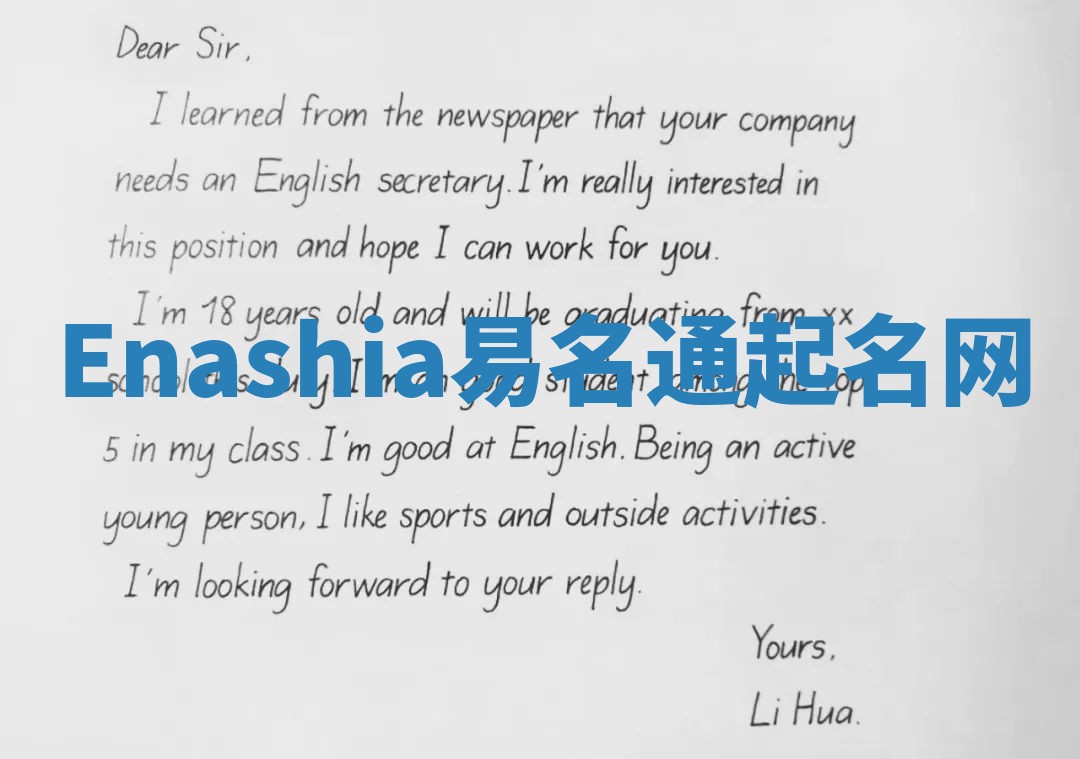 Dear Sir,
I learned from the newspaper that your company
needs an English secretary. I'm really interested in
this position and hope I can work for you.
I'm 18 years old and will be graduating from xx
Enashia易名通起名网
school this July. I'm an good student, among the top
5 in my class. I'm good at English. Being an active
young person, I like sports and outside activities.
I'm looking forward to your reply.
Yours,
Li Hua.